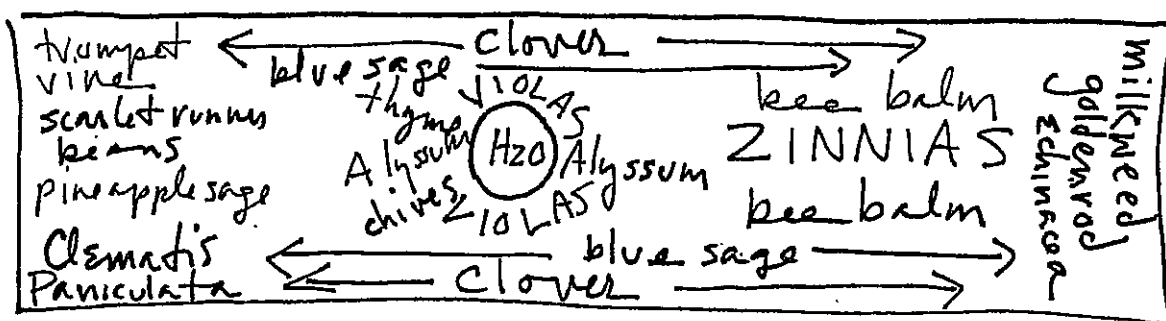 trumpet
vine
scarlet runner
beans
pineapple sage
Clematis
Paniculata
Clover
blue sage
thyme
VIOLAS
Alyssum
H2O
Alyssum
chives
VIOLAS
bee balm
ZINNIAS
bee balm
blue sage
Clover
milkweed
goldenrod
Echinacea